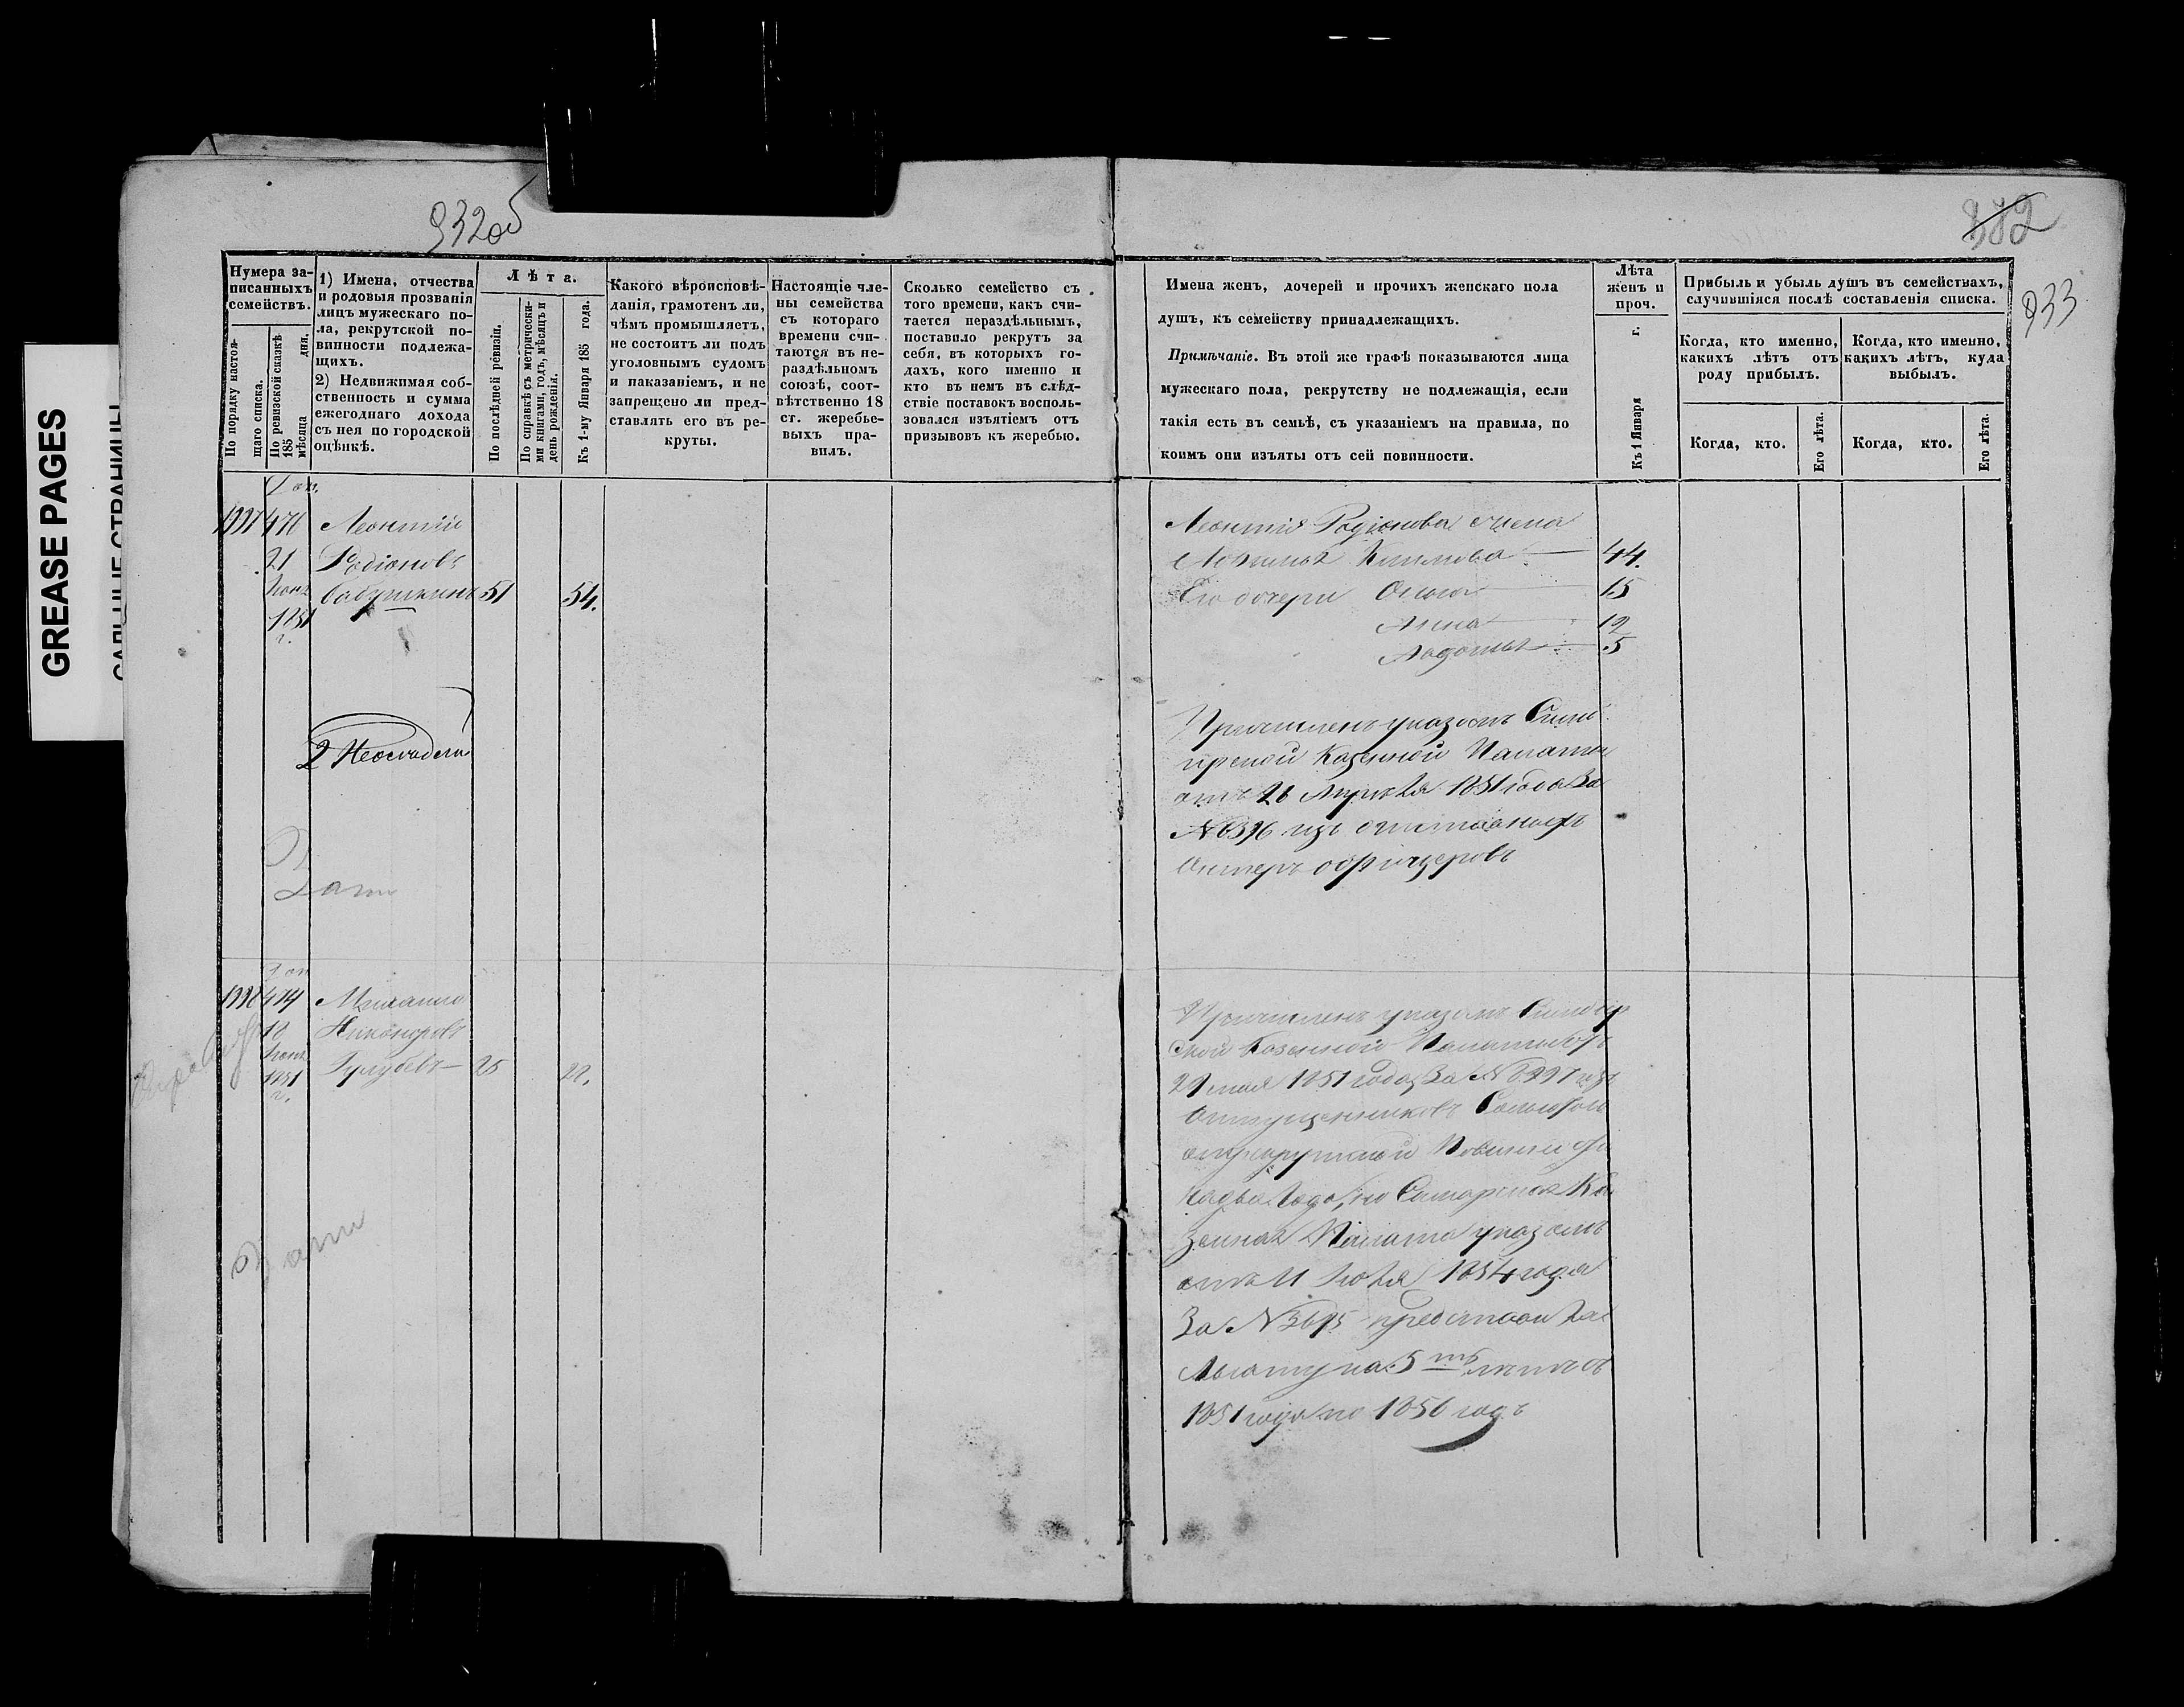 GREASE PAGES
932об
382
933
Нумера за-
писанныхъ
семействъ.
По порядку настоя-
щаго списка.
По ревизской сказкѣ
185 мѣсяца дня.
1) Имена, отчества
и родовыя прозванія
лицъ мужескаго по-
ла, рекрутской по-
винности подлежа-
щихъ.
2) Недвижимая соб-
ственность и сумма
ежегоднаго дохода
съ нея по городской
оцѣнкѣ.
Лѣта.
По послѣдней ревизіи.
По справкѣ съ метрически-
ми книгами, годъ, мѣсяцъ и
день рожденія.
Къ 1-му Января 185 года.
Какого вѣроисповѣ-
данія, грамотенъ ли,
чѣмъ промышляетъ,
не состоитъ ли подъ
уголовнымъ судомъ
и наказаніемъ, и не
запрещено ли пред-
ставлять его въ ре-
круты.
Настоящіе чле-
ны семейства
съ котораго
времени счи-
таются въ не-
раздѣльномъ
союзѣ, соот-
вѣтственно 18
ст. жеребье-
выхъ пра-
вилъ.
Сколько семейство съ
того времени, какъ счи-
тается нераздѣльнымъ,
поставило рекрутъ за
себя, въ которыхъ го-
дахъ, кого именно и
кто въ немъ въ слѣд-
ствіе поставокъ восполь-
зовался изъятіемъ отъ
призывовъ къ жеребью.
Имена женъ, дочерей и прочихъ женскаго пола
душъ, къ семейству принадлежащихъ.
Примѣчаніе. Въ этой же графѣ показываются лица
мужескаго пола, рекрутству не подлежащія, если
такія есть въ семьѣ, съ указаніемъ на правила, по
коимъ они изъяты отъ сей повинности.
Лѣта
женъ и
проч.
Къ 1 Января г.
Прибыль и убыль душъ въ семействахъ,
случившіяся послѣ составленія списка.
Когда, кто именно,
какихъ лѣтъ отъ
роду прибылъ.
Когда, кто именно,
какихъ лѣтъ, куда
выбылъ.
Когда, кто.
Его лѣта.
Когда, кто.
Его лѣта.
Доп.
1997 476 Леонтій
21 Родіоновъ
Іюня Бабушкинъ 51 54.
1851
г.
Леонтія Родіонова жена
Климова 44.
Его дочери Ольга 15
Анна 12
5
Причисленъ указомъ Симб
ирской Казенной Палаты
отъ 26 Апрѣля 1851 года За
№ 6396 изъ отставныхъ
Унтеръ офицеровъ
Доп
1998 474
18 Никаноровъ
Іюня
1851 25 28.
г.
Причисленъ указомъ Симбир
ской Казенной Палаты отъ
29 мая 1851 года За № 8291 изъ
отпущенниковъ
отрекрутской Повинности
на два года, но Самарская Ка
зенная Палата указомъ
отъ 11 Іюля 1854 года
За № 3695 предоставила
Льготу на 5ть лѣтъ съ
1851 года по 1856 годъ